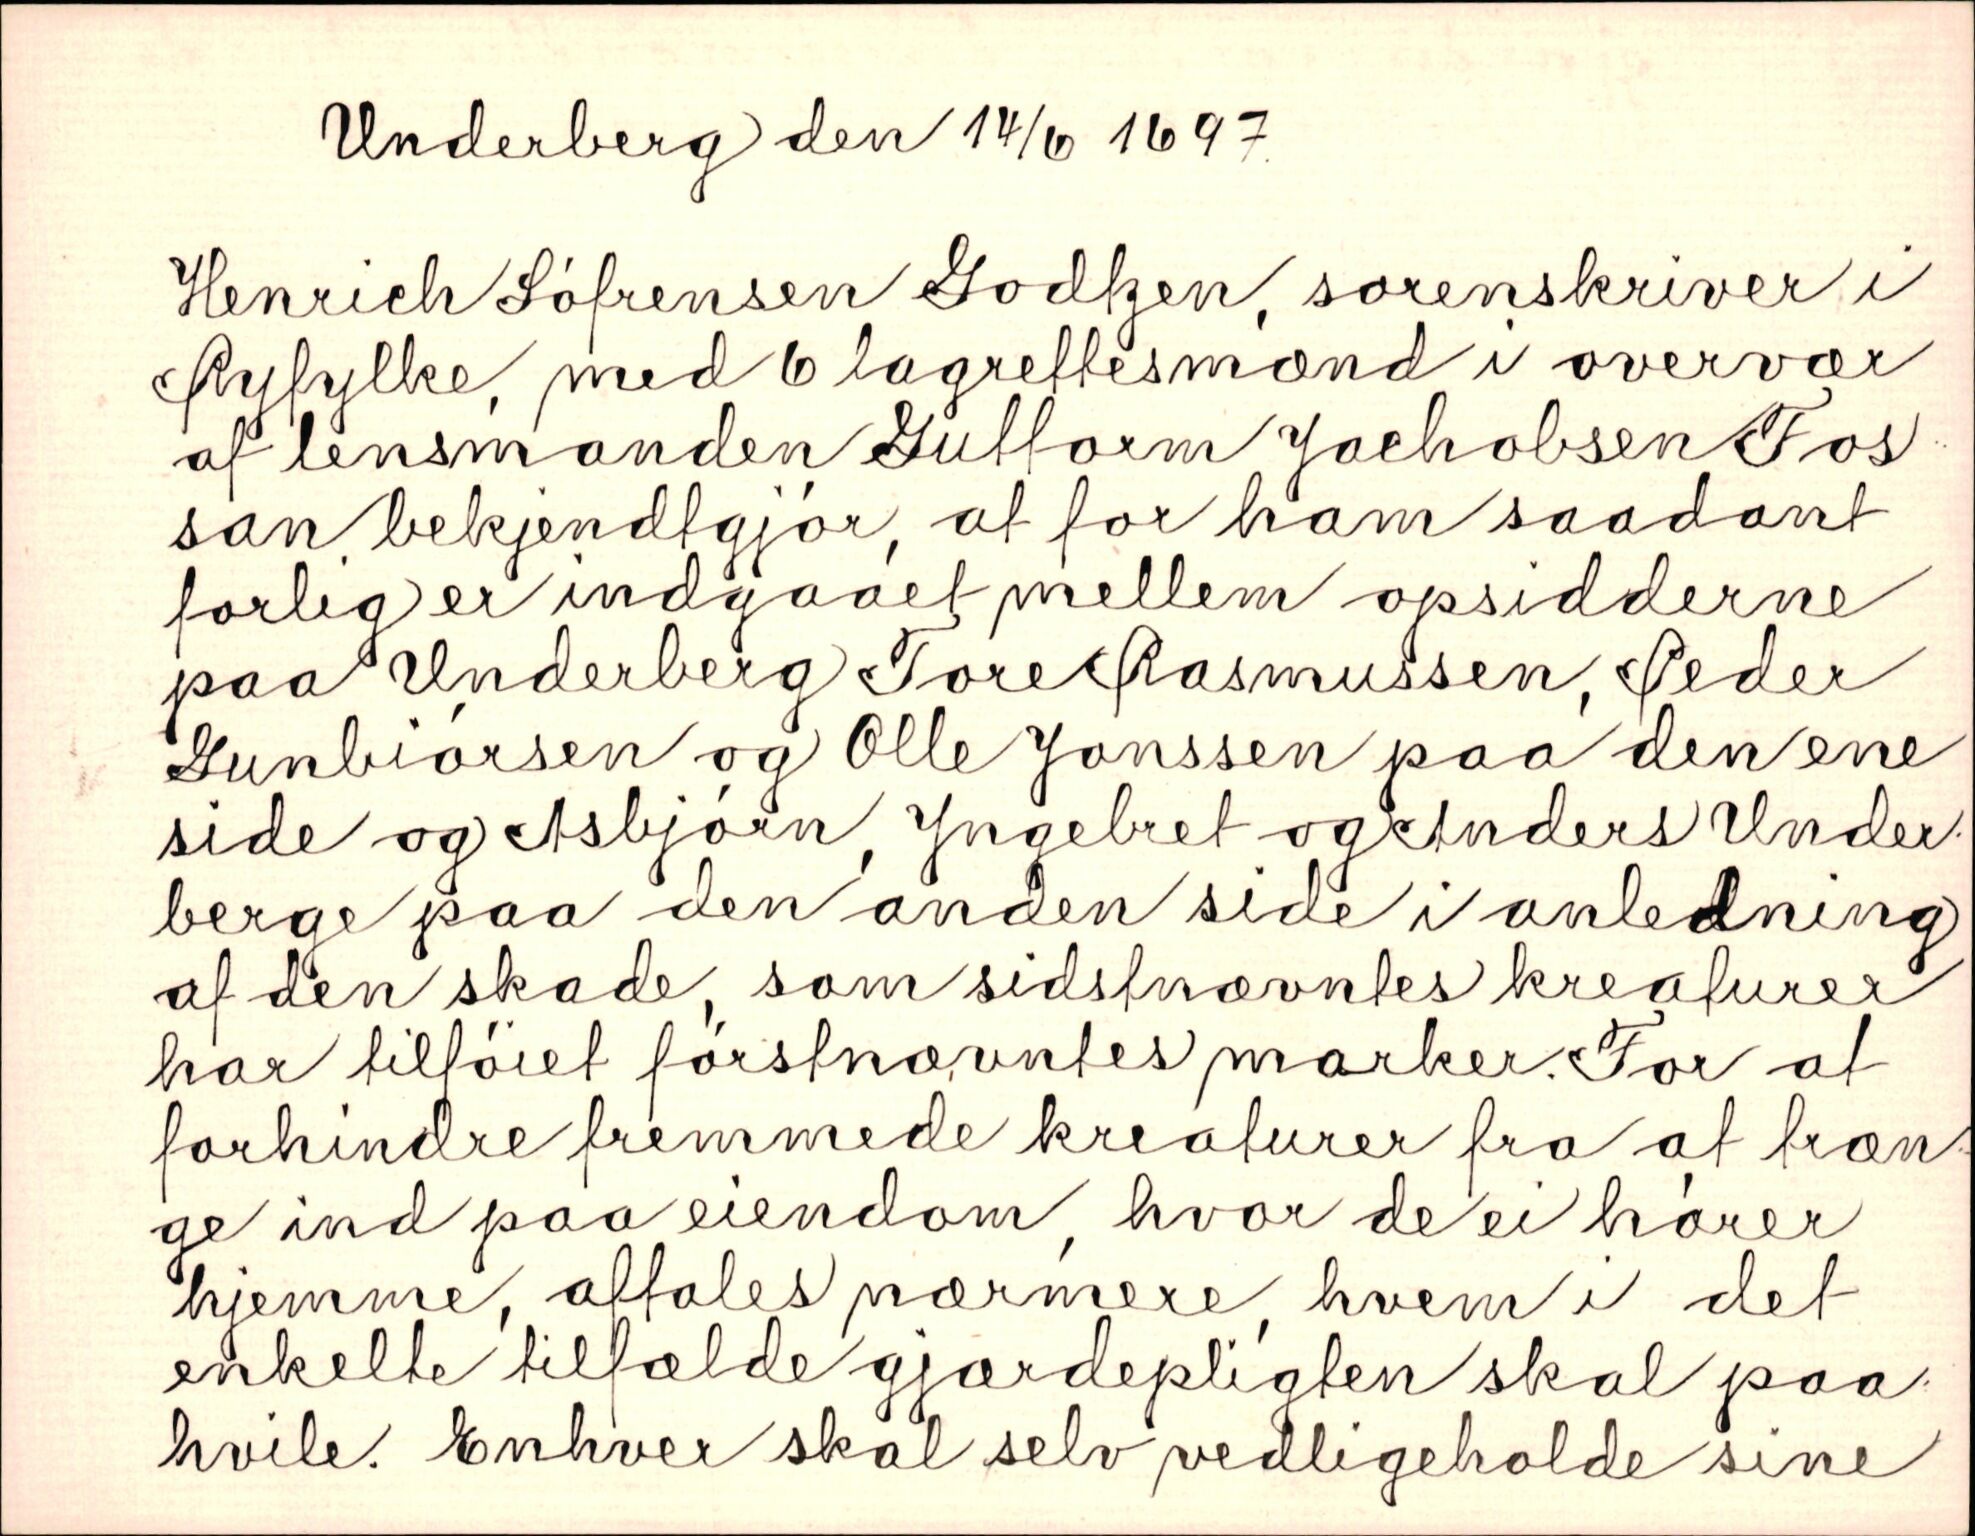 Underberg den 14/6 1697.
Henrich Sófrensen Godtzen, sorenskriver i
Ryfylke, med 6 lagrettesmænd i overvær
af lensmanden Guttorm Jachobsen Fos-
san, bekjendtgjór, at for ham saadant
forlig er indgaaet mellem opsidderne
paa Underberg Tore Rasmussen, Peder
Gunbiórsen og Olle Jonssen paa den ene
side og Asbjórn, Yngebret og Anders Under-
berge paa den anden side i anledning
af den skade, som sidstnævntes kreaturer
har tilfóiet fórstnævntes marker. For at
forhindre fremmede kreaturer fra at træn-
ge ind paa eiendom, hvor de ei hórer
hjemme, aftales nærmere, hvem i det
enkelte tilfælde gjærdepligten skal paa-
hvile. Enhver skal selv vedligeholde sine